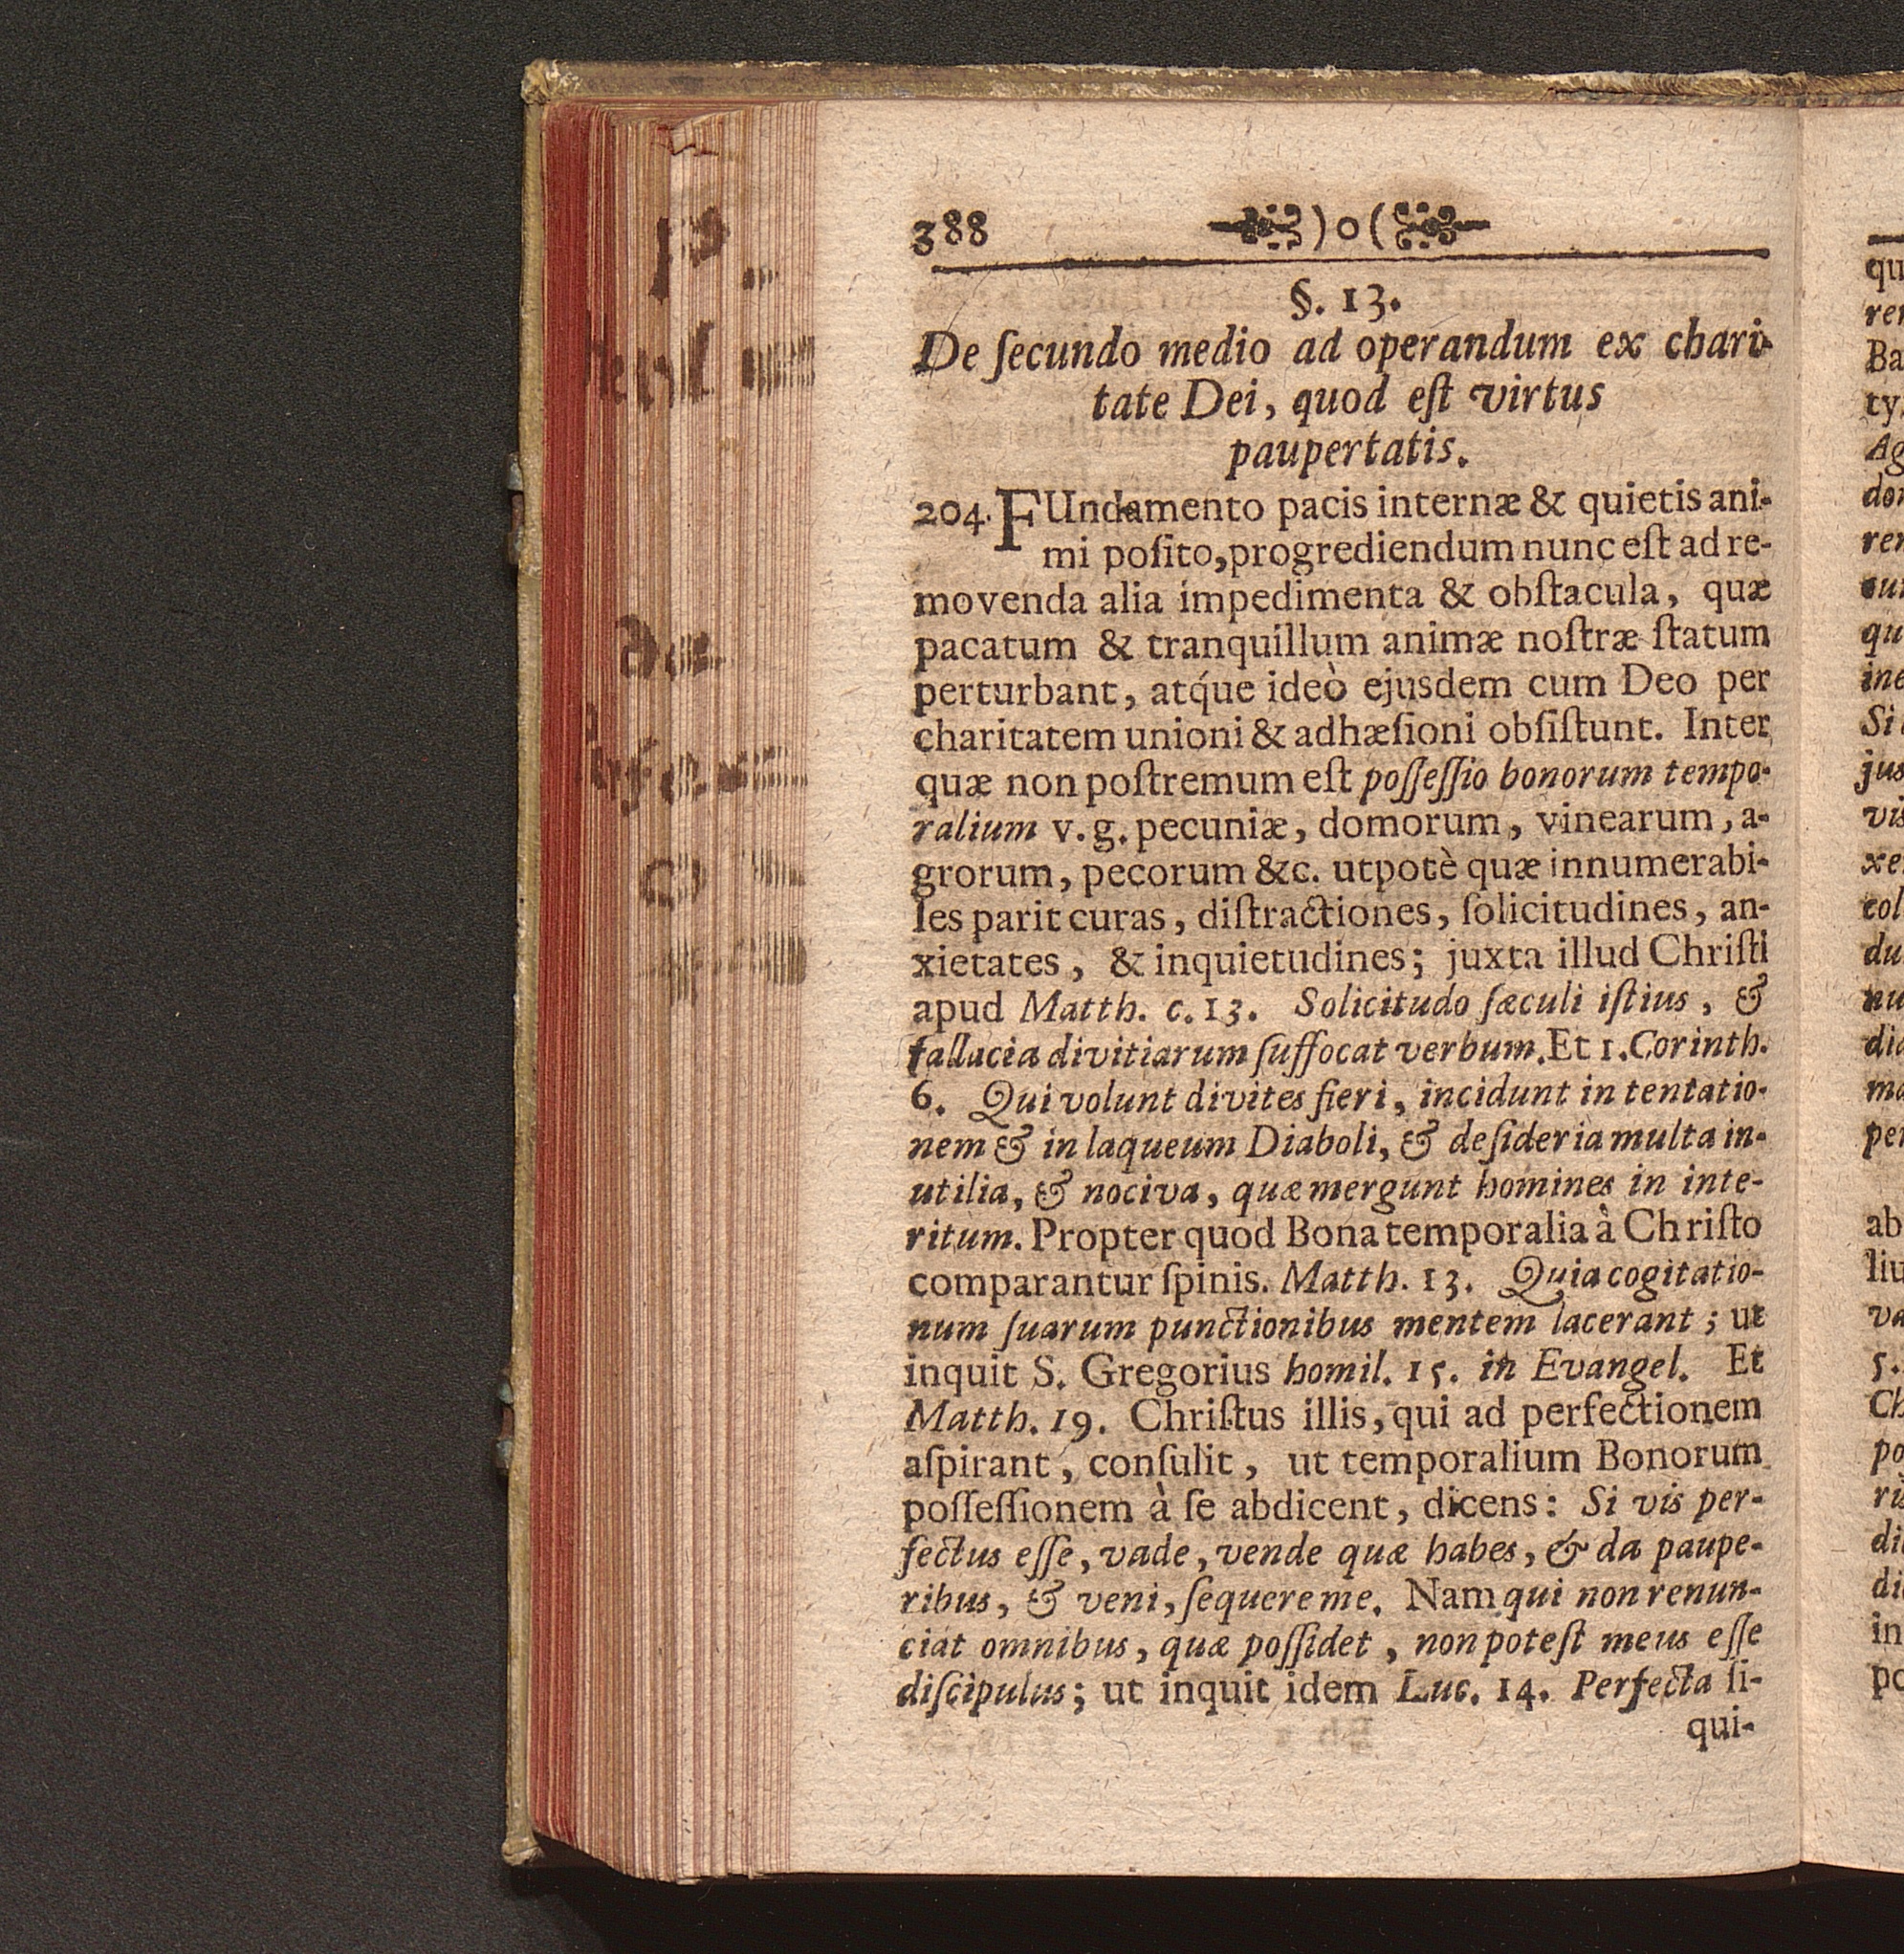 388 )o(
§. 13.
De ſecundo medio ad operandum ex chari-
tate Dei, quod eſt virtus
paupertatis.
204. FUndamento pacis internæ & quietis ani-
mi poſito, progrediendum nunc eſt ad re-
movenda alia impedimenta & obſtacula, quæ
pacatum & tranquillum animæ noſtræ ſtatum
perturbant, atq́ue ideò ejusdem cum Deo per
charitatem unioni & adhæſioni obſiſtunt. Inter
quæ non poſtremum eſt poſſeſſio bonorum tempo-
ralium v. g. pecuniæ, domorum, vinearum, a-
grorum, pecorum &c. utpotè quæ innumerabi-
les parit curas, diſtractiones, ſolicitudines, an-
xietates, & inquietudines; juxta illud Chriſti
apud Matth. c. 13. Solicitudo ſæculi iſtius, &
fallacia divitiarum ſuffocat verbum. Et 1. Corinth.
6. Qui volunt divites fieri, incidunt in tentatio-
nem & in laqueum Diaboli, & deſideria multa in-
utilia, & nociva, quæ mergunt homines in inte-
ritum. Propter quod Bona temporalia à Chriſto
comparantur ſpinis. Matth. 13. Quia cogitatio-
num ſuarum punctionibus mentem lacerant; ut
inquit S. Gregorius homil. 15. in Evangel. Et
Matth. 19. Chriſtus illis, qui ad perfectionem
aſpirant, conſulit, ut temporalium Bonorum
poſſeſſionem à ſe abdicent, dicens: Si vis per-
fectus eſſe, vade, vende quæ habes, & da paupe-
ribus, & veni, ſequere me. Nam qui non renun-
ciat omnibus, quæ poſſidet, non poteſt meus eſſe
diſcipulus; ut inquit idem Luc. 14. Perfecta ſi-
qui-